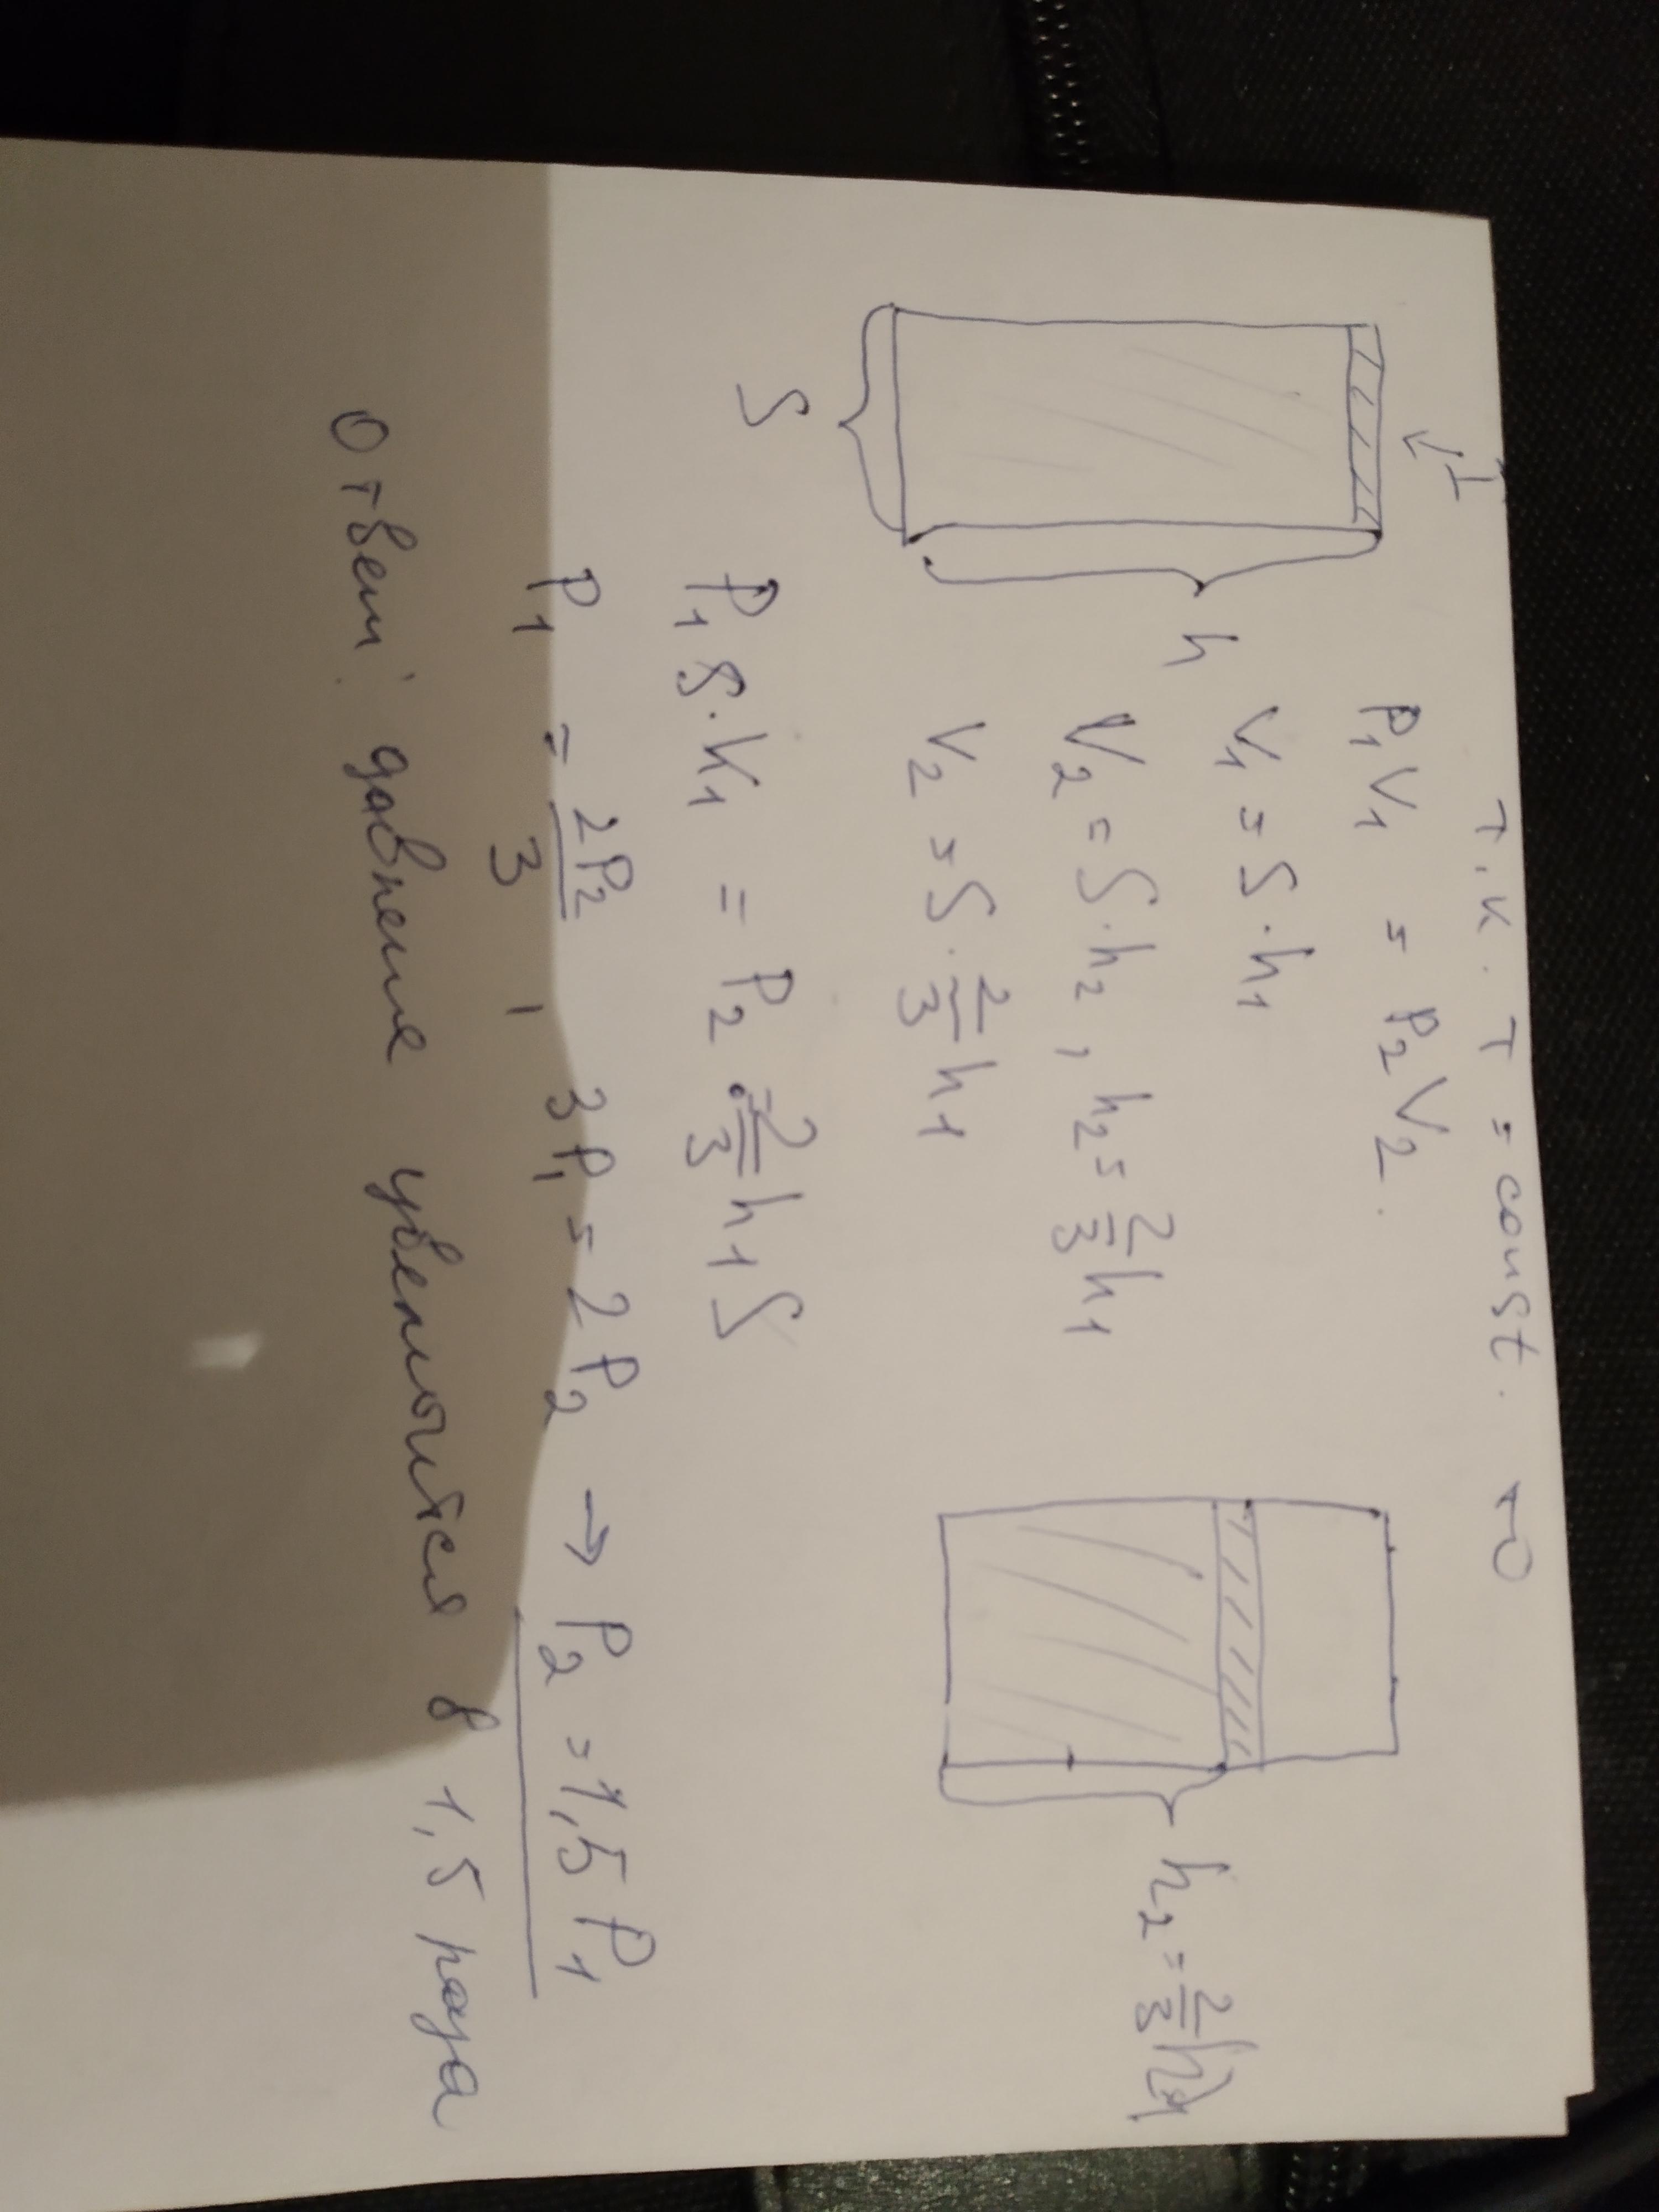 Т.к. T = const. то
P₁V₁ = P₂V₂.
h
V₁ = S·h₁
V₂ = S·h₂, h₂ = 2/3 h₁
h₂ = 2/3 h₁
V₂ = S·2/3 h₁
S
P₁ S·h₁ = P₂·2/3 h₁ S
P₁ = 2P₂/3, 3P₁ = 2P₂ → P₂ = 1,5 P₁
Ответ: давление увеличится в 1,5 раза